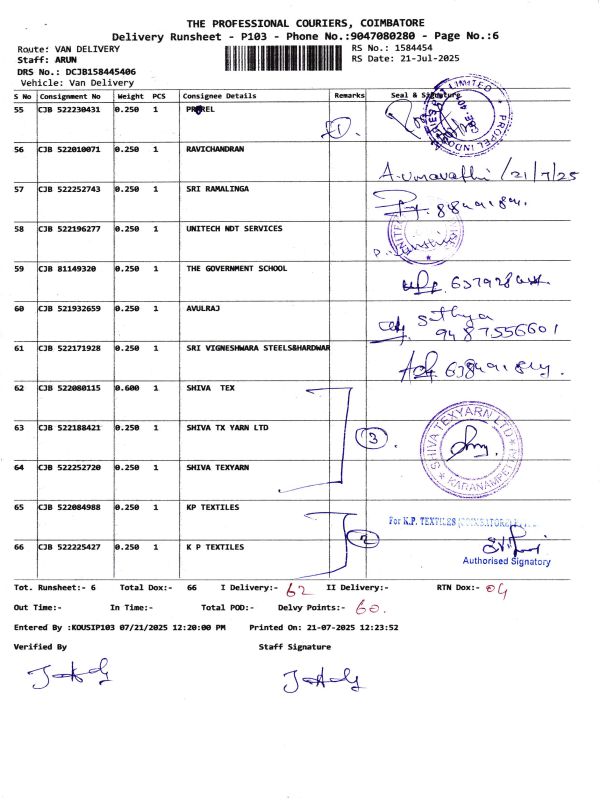 THE PROFESSIONAL COURIERS, COIMBATORE
Delivery Runsheet - P103 - Phone No.:9047080280 - Page No.:6
Route: VAN DELIVERY RS No.: 1584454
Staff: ARUN RS Date: 21-Jul-2025
DRS No.: DCJB158445406
Vehicle: Van Delivery
S No Consignment No Weight PCS Consignee Details Remarks Seal & Signature
55 CJB 522230431 0.250 1 PROPEL
56 CJB 522010071 0.250 1 RAVICHANDRAN
A. Umavathi /21/7/25
57 CJB 522252743 0.250 1 SRI RAMALINGA
58 CJB 522196277 0.250 1 UNITECH NDT SERVICES
59 CJB 81149320 0.250 1 THE GOVERNMENT SCHOOL
60 CJB 521932659 0.250 1 AVULRAJ
Sathya
9487556601
61 CJB 522171928 0.250 1 SRI VIGNESHWARA STEELS&HARDWAR
62 CJB 522080115 0.600 1 SHIVA TEX
63 CJB 522188421 0.250 1 SHIVA TX YARN LTD
3
SHIVA TEXYARN LTD
KARANAMPET
64 CJB 522252720 0.250 1 SHIVA TEXYARN
65 CJB 522084988 0.250 1 KP TEXTILES
For K.P. TEXTILES (COIMBATORE)
2
66 CJB 522225427 0.250 1 K P TEXTILES
Authorised Signatory
Tot. Runsheet:- 6 Total Dox:- 66 I Delivery:- 62 II Delivery:- RTN Dox:- 04
Out Time:- In Time:- Total POD:- Delvy Points:- 60.
Entered By :KOUSIP103 07/21/2025 12:20:00 PM Printed On: 21-07-2025 12:23:52
Verified By Staff Signature